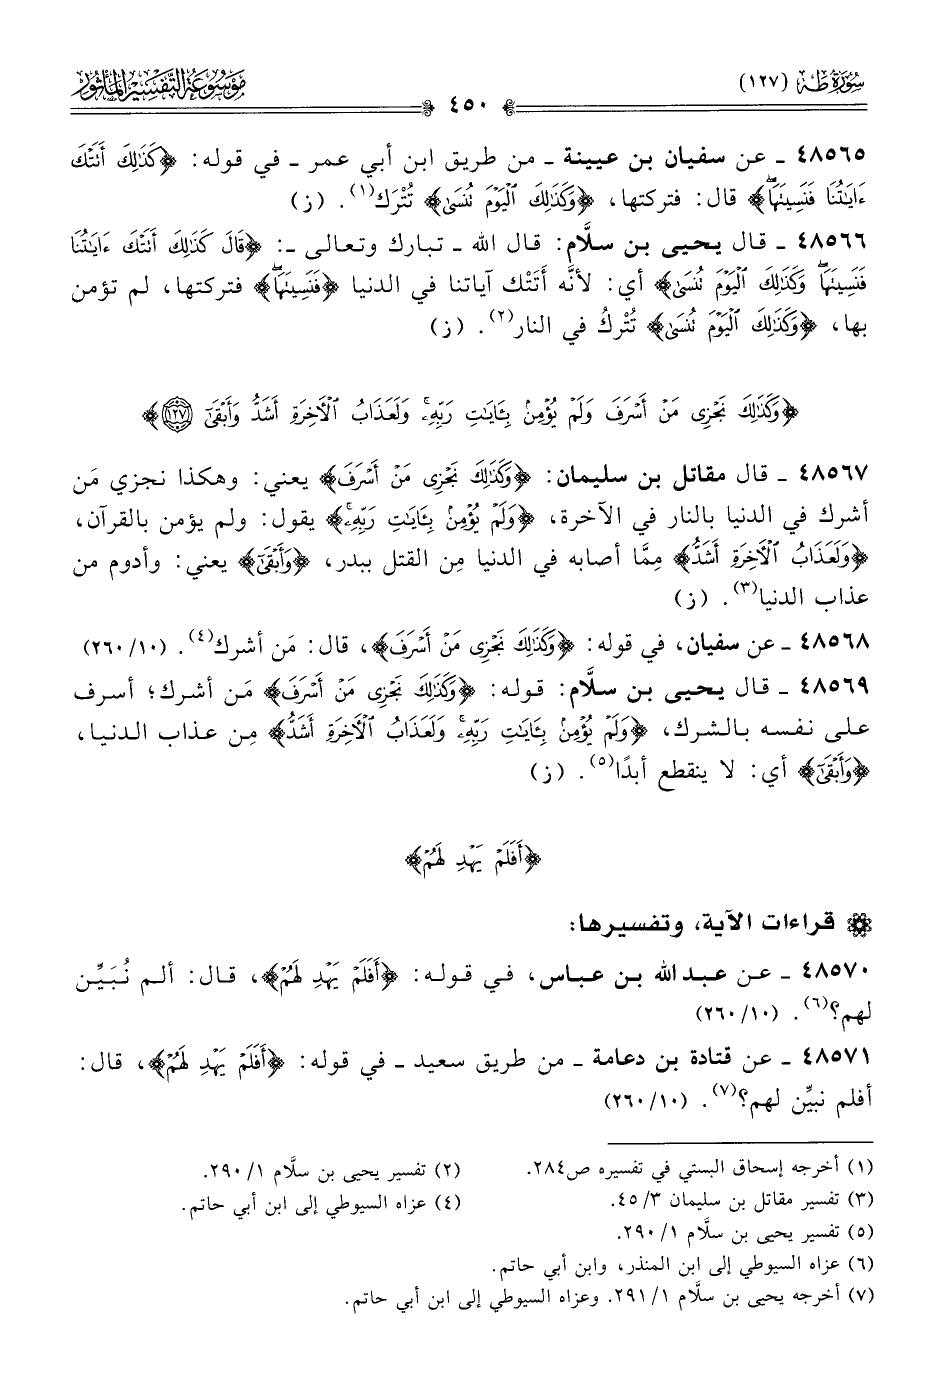 سُورَةُ طه (١٢٧)
٤٥٠
مَوْسُوعَةُ التَّفْسِيْرِ المَأْثُور
٤٨٥٦٥ ـ عن سفيان بن عيينة ـ من طريق ابن أبي عمر ـ في قوله: ﴿كَذَٰلِكَ أَتَتْكَ
ءَايَٰتُنَا فَنَسِينَهَاۖ﴾ قال: فتركتها، ﴿وَكَذَٰلِكَ ٱلْيَوْمَ نُنسَىٰ﴾ تُتْرَك(١). (ز)
٤٨٥٦٦ ـ قال يحيى بن سلَّام: قال الله ـ تبارك وتعالى ـ: ﴿قَالَ كَذَٰلِكَ أَتَتْكَ ءَايَٰتُنَا
فَنَسِينَهَاۖ وَكَذَٰلِكَ ٱلْيَوْمَ نُنسَىٰ﴾ أي: لأنَّه أَتَتْك آياتنا في الدنيا ﴿فَنَسِينَهَاۖ﴾ فتركتها، لم تؤمن
بها، ﴿وَكَذَٰلِكَ ٱلْيَوْمَ نُنسَىٰ﴾ تُتْركُ في النار(٢). (ز)
﴿وَكَذَٰلِكَ نَجْزِى مَنْ أَسْرَفَ وَلَمْ يُؤْمِنۢ بِـَٔايَٰتِ رَبِّهِۦۚ وَلَعَذَابُ ٱلْأَخِرَةِ أَشَدُّ وَأَبْقَىٰٓ ١٢٧﴾
٤٨٥٦٧ ـ قال مقاتل بن سليمان: ﴿وَكَذَٰلِكَ نَجْزِى مَنْ أَسْرَفَ﴾ يعني: وهكذا نجزي مَن
أشرك في الدنيا بالنار في الآخرة، ﴿وَلَمْ يُؤْمِنۢ بِـَٔايَٰتِ رَبِّهِۦۚ﴾ يقول: ولم يؤمن بالقرآن،
﴿وَلَعَذَابُ ٱلْأَخِرَةِ أَشَدُّ﴾ مِمَّا أصابه في الدنيا مِن القتل ببدر، ﴿وَأَبْقَىٰٓ﴾ يعني: وأدوم من
عذاب الدنيا(٣). (ز)
٤٨٥٦٨ ـ عن سفيان، في قوله: ﴿وَكَذَٰلِكَ نَجْزِى مَنْ أَسْرَفَ﴾، قال: مَن أشرك(٤). (٢٦٠/١٠)
٤٨٥٦٩ ـ قال يحيى بن سلَّام: قوله: ﴿وَكَذَٰلِكَ نَجْزِى مَنْ أَسْرَفَ﴾ مَن أشرك؛ أسرف
على نفسه بالشرك، ﴿وَلَمْ يُؤْمِنۢ بِـَٔايَٰتِ رَبِّهِۦۚ وَلَعَذَابُ ٱلْأَخِرَةِ أَشَدُّ﴾ مِن عذاب الدنيا،
﴿وَأَبْقَىٰٓ﴾ أي: لا ينقطع أبدًا(٥). (ز)
﴿أَفَلَمْ يَهْدِ لَهُمْ﴾
قراءات الآية، وتفسيرها:
٤٨٥٧٠ ـ عن عبد الله بن عباس، في قوله: ﴿أَفَلَمْ يَهْدِ لَهُمْ﴾، قال: ألم نُبَيِّن
لهم؟(٦). (٢٦٠/١٠)
٤٨٥٧١ ـ عن قتادة بن دعامة ـ من طريق سعيد ـ في قوله: ﴿أَفَلَمْ يَهْدِ لَهُمْ﴾، قال:
أفلم نبيِّن لهم؟(٧). (٢٦٠/١٠)
(١) أخرجه إسحاق البستي في تفسيره ص٢٨٤.
(٢) تفسير يحيى بن سلَّام ١/ ٢٩٠.
(٣) تفسير مقاتل بن سليمان ٣/ ٤٥.
(٤) عزاه السيوطي إلى ابن أبي حاتم.
(٥) تفسير يحيى بن سلَّام ١/ ٢٩٠.
(٦) عزاه السيوطي إلى ابن المنذر، وابن أبي حاتم.
(٧) أخرجه يحيى بن سلَّام ١/ ٢٩١. وعزاه السيوطي إلى ابن أبي حاتم.